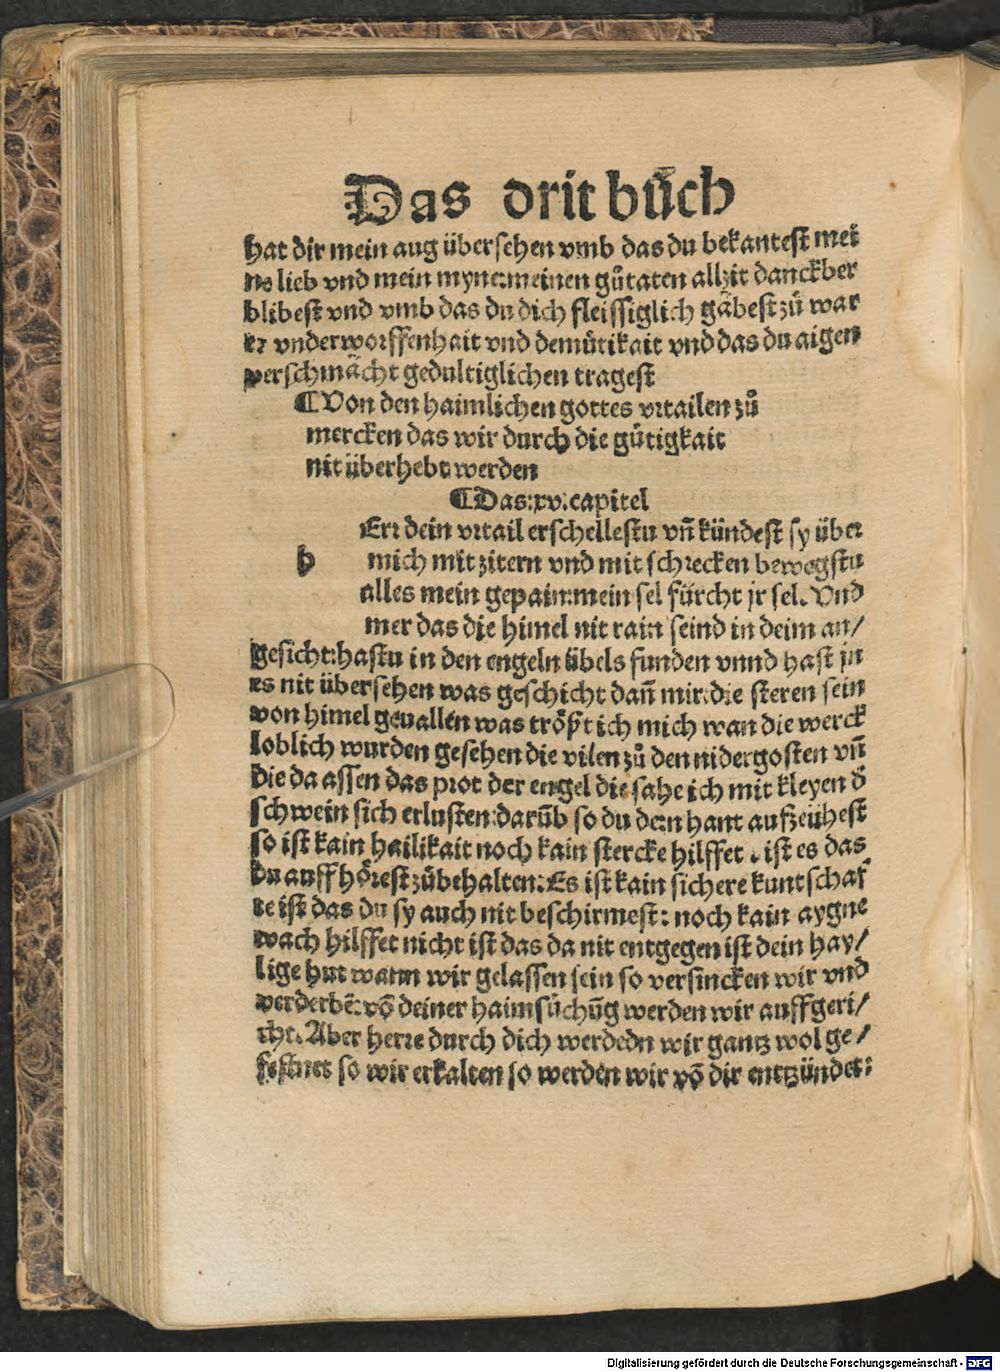 Das drit bůch
hat dir mein aug übersehen vmb das du bekantest mei
ne lieb vnd mein myne:meinen gůtaten allzit danckber
blibest vnd vmb das du dich fleissiglich gäbest zů war
er vnderworffenhait vnd demůtikait vnd das du aigen
verschmächt gedultiglichen tragest
¶Von den haimlichen gottes vrtailen zů
mercken das wir durch die gůtigkait
nit überhebt werden
¶Das.xv.capitel
Err dein vrtail erschellestu vñ kündest sy über
h mich mit zitern vnd mit schrecken bewegstu
alles mein gepain:mein sel fürcht jr sel. Vnd
mer das die himel nit rain seind in deim an/
gesicht:hastu in den engeln übels funden vnnd hast jn
es nit übersehen was geschicht dañ mir:die steren sein
von himel geuallen was tröst ich mich wan die werck
loblich wurden gesehen die vilen zů den nidergosten vñ
die da assen das prot der engel die sahe ich mit kleyen d̄
schwein sich erlusten:darūb so du dein hant aufzeühest
so ist kain hailikait noch kain stercke hilffet . ist es das
du auffhörest zůbehalten:Es ist kain sichere kuntschaf
te ist das du sy auch nit beschirmest: noch kain aygne
wach hilffet nicht ist das da nit entgegen ist dein hay/
lige hut wann wir gelassen sein so versincken wir vnd
verderbē: vō deiner haimsůchūg werden wir auffgeri/
cht. Aber herre durch dich werdedn wir gantz wol ge/
festnet so wir erkalten so werden wir vō dir entzündet:
Digitalisierung gefördert durch die Deutsche Forschungsgemeinschaft - DFG